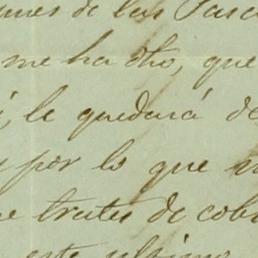 de las Pasc
me ha dho, que
le quedará de
por lo que
trate de cob
este ultimo